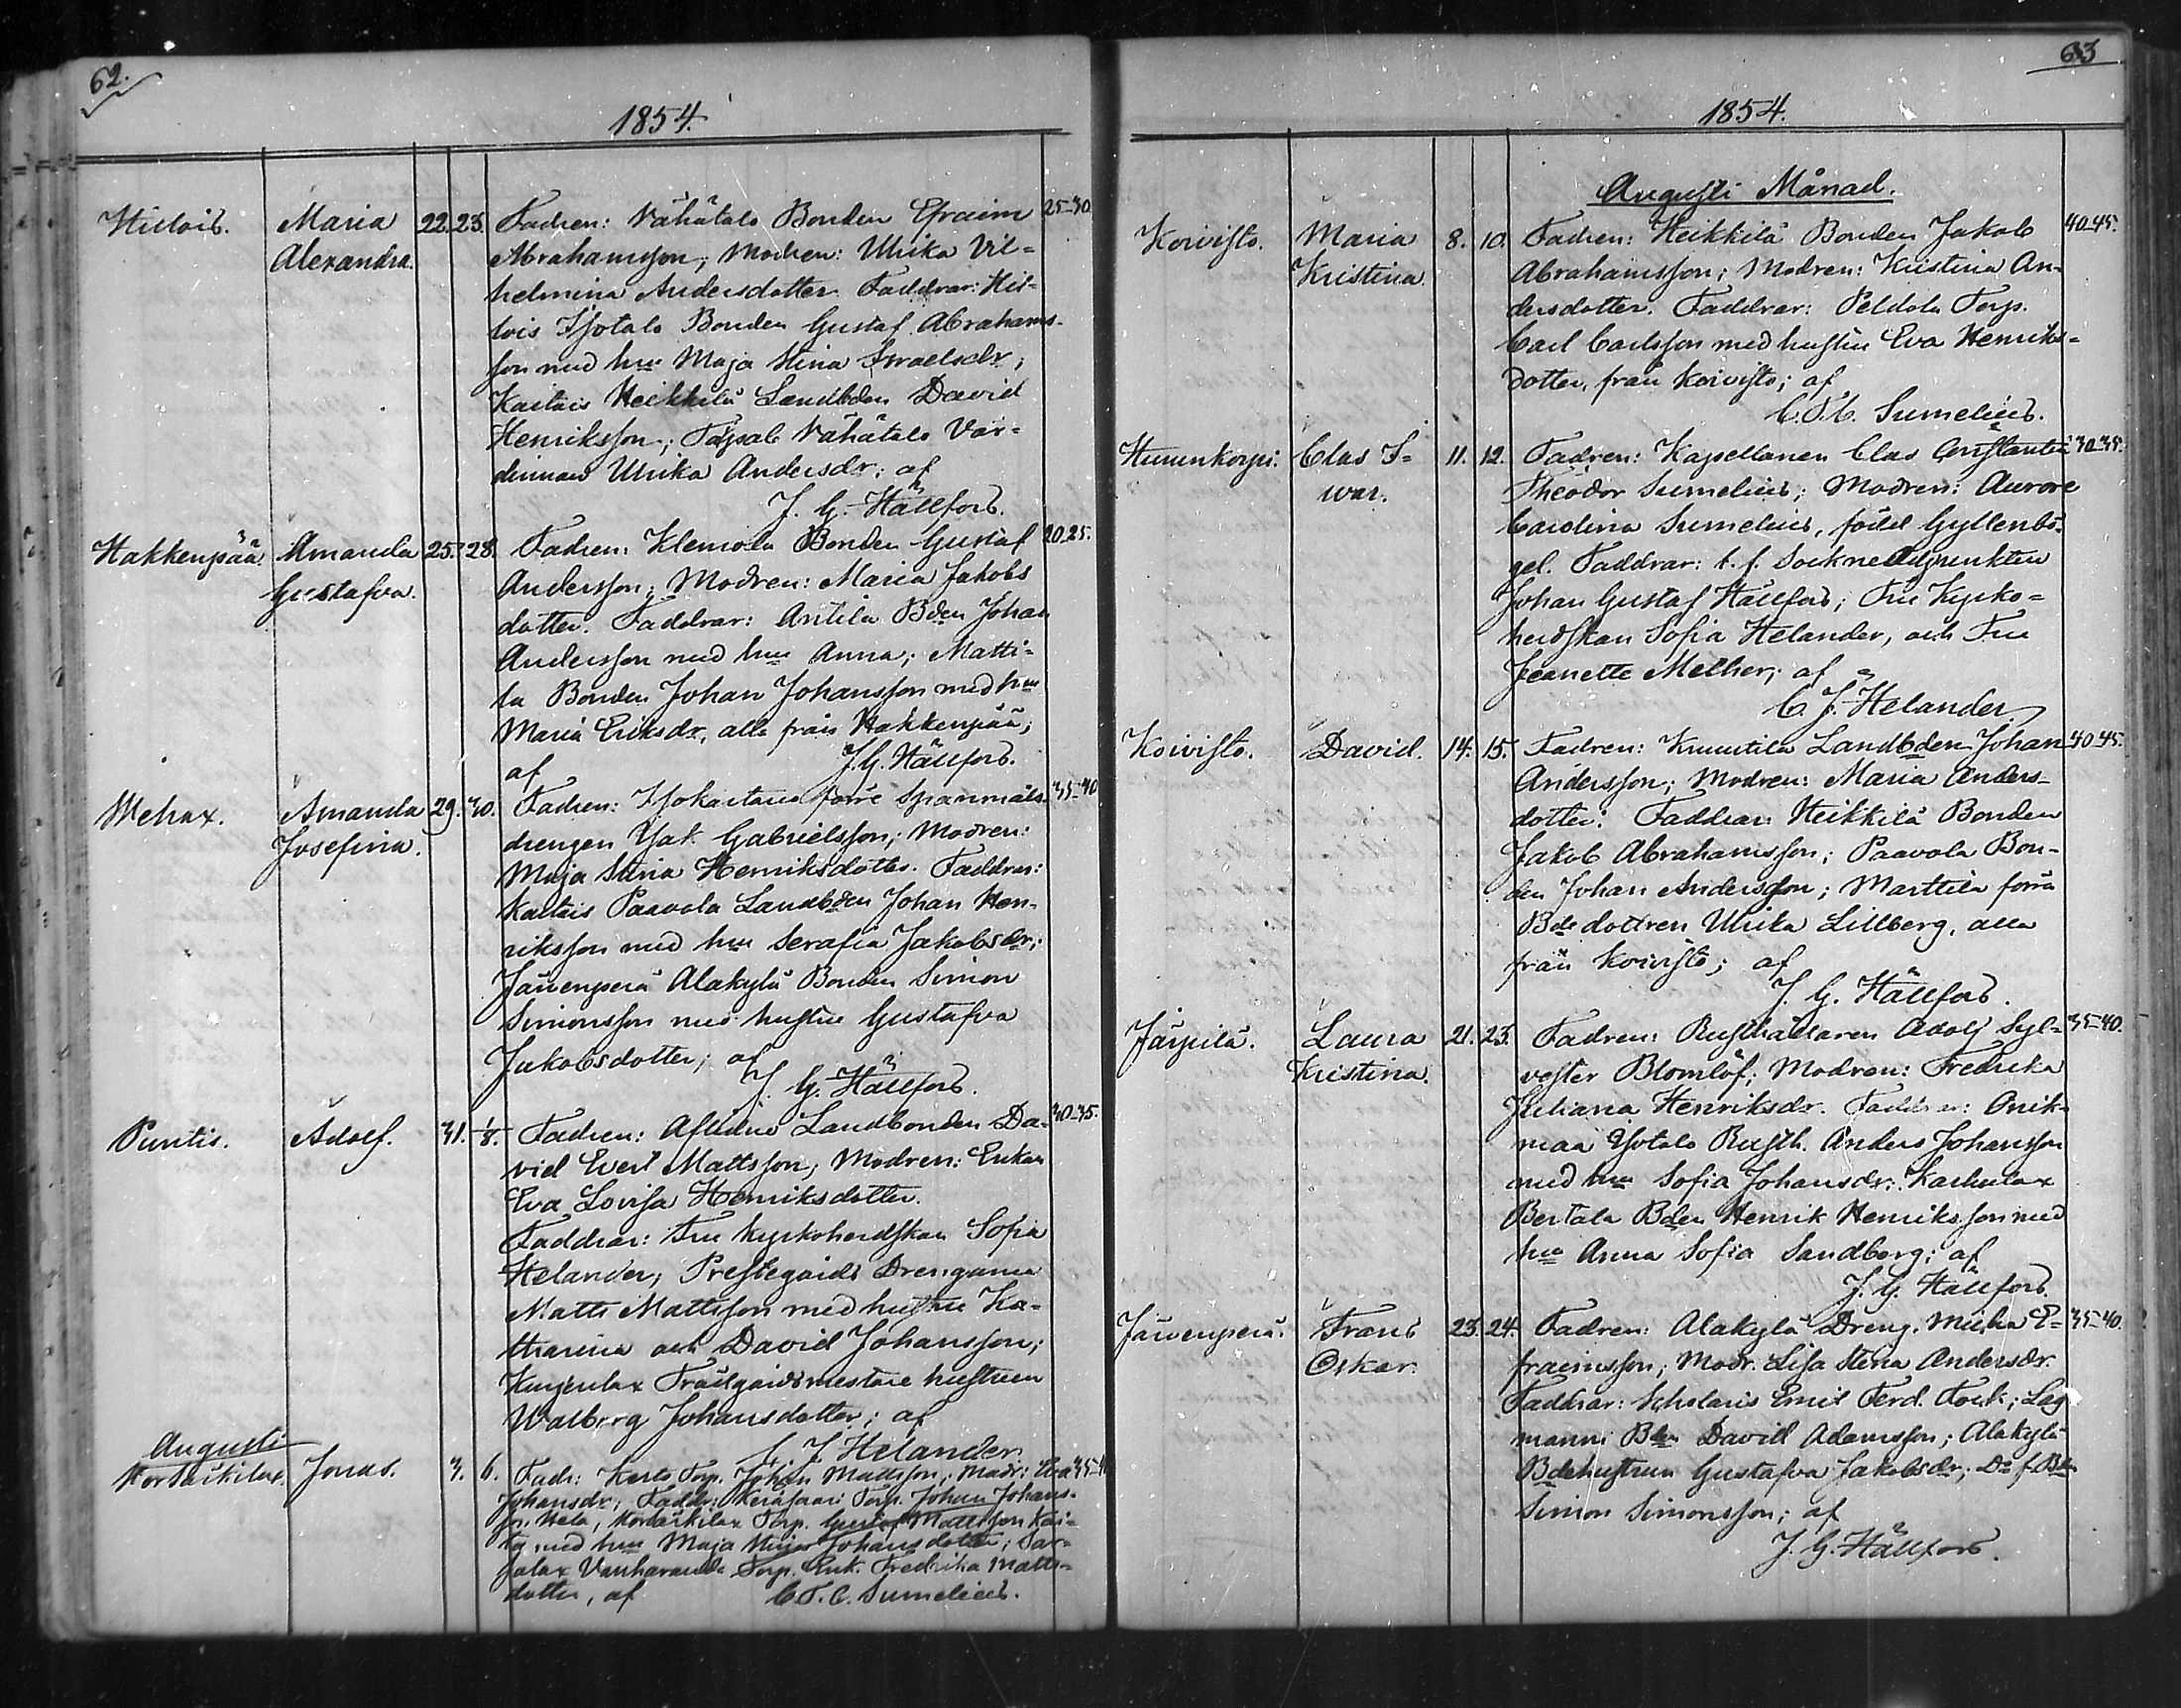 62.
1854.
Hiilois. Maria 22. 23. Fadren: Vähätalo Bonden Efraim 25-30.
Alexandra. Abrahamsson; Modren: Ulrika Vil-
helmina Andersdotter. Faddrar: Hii-
lois Isotalo Bonden Gustaf Abrahams-
son med hru Maja Stina Israelsdr;
Kaitais Heikkilä Landbden David
Henriksson; Vähätalo Vär-
dinnan Ulrika Andersdr; af
J. G. Hällfors.
Hakkenpää. Amanda 25. 28. Fadren: Klemola Bonden Gustaf 20-25.
Gustafva. Andersson; Modren: Maria Jakobs
dotter. Faddrar: Antila Bden Johan
Andersson med hru Anna; Matti-
la Bonden Johan Johansson med hru
Maria Eriksdr, alla från Hakkenpää;
af J. G. Hällfors.
Mehax. Amanda 29. 30. Fadren: Isokaitara förre Spanmåls- 35-40
Josefina. drengen Isak Gabrielsson; Modren:
Maja Stina Henriksdotter. Faddrar:
Kaitais Paavola Landbden Johan Hen-
riksson med hru Serafia Jakobsdr;
Järvenperä Alakylä Bonden Simon
Simonsson med hustru Gustafva
Jakobsdotter; af
J. G. Hällfors.
Puntis. Adolf. 31. 1/8. Fadren: Aflidne Landbonden Da- 30-35.
vid Evert Mattsson; Modren: Enkan
Eva Lovisa Henriksdotter.
Faddrar: Fru Kyrkoherdskan Sofia
Helander; Prestegårds Drengarna
Matts Mattsson med hustru Ka-
tharina och David Johansson;
Trädgårdsmestare hustrun
Walborg Johansdotter; af
C. J. Helander
Augusti
Kortäskilax. Jonas. 3. 6. Fadr: Torp. Johan Mattsson; Modr: Eva 35-4
Johansdr; Faddr: Keräsaari Torp. Johan Johans-
son Kortäskilax Torp. Gustaf Mattsson
med hru Maja Stina Johansdotter;
Vanharanda Torp. Enk. Fredrika Matts-
dotter, af C. T. C. Sumelius.
63
1854.
Augusti Månad.
Koivisto. Maria 8. 10. Fadren: Heikkilä Bonden Jakob 40-45.
Kristina. Abrahamsson; Modren: Kristina An-
dersdotter. Faddrar: Peldola Torp.
Carl Carlsson med hustru Eva Henriks-
dotter, från Koivisto; af
C. T. C. Sumelius.
Huunenkorpi. Clas I- 11. 12. Fadren: Kapellanen Clas Constantin 30-35.
var. Theodor Sumelius; Modren: Aurore
Carolina Sumelius, född Gyllenbö-
gel. Faddrar: t. f. Sockne Adjunkten
Johan Gustaf Hällfors; Fru Kyrko-
herdskan Sofia Helander, och Fru
Jeanette Melher; af
C. J. Helander
Koivisto. David. 14. 15. Fadren: Knuutila Landbden Johan 40-45.
Andersson; Modren: Maria Anders-
dotter. Faddrar: Heikkilä Bonden
Jakob Abrahamsson; Paavola Bon-
den Johan Andersson; Marttila förra
Bde dottren Ulrika Lillberg, alla
från Koivisto; af
J. G. Hällfors.
Järpilä. Laura 21. 23. Fadren: Rusthållaren Adolf Syl- 35-40.
Kristina. vester Blomlöf; Modren: Fredrika
Juliana Henriksdr. Faddrar: Onik-
maa Isotalo Rusth. Anders Johansson
med hru Sofia Johansdr; Karhulax
Bertala Bden Henrik Henriksson med
hru Anna Sofia Sandberg; af
J. G. Hällfors.
Järvenperä. Frans 23. 24. Fadren: Alakylä Dreng. Micha E- 35-40.
Oskar. fraimsson; Modr. Lisa Stina Andersdr.
Faddrar: Scholaris Emil Ferd. Fock; Lag
manni Bden David Adamsson; Alakylä
Bdehustrun Gustafva Jakobsdr; Do f. Bden
Simon Simonsson; af
J. G. Hällfors.